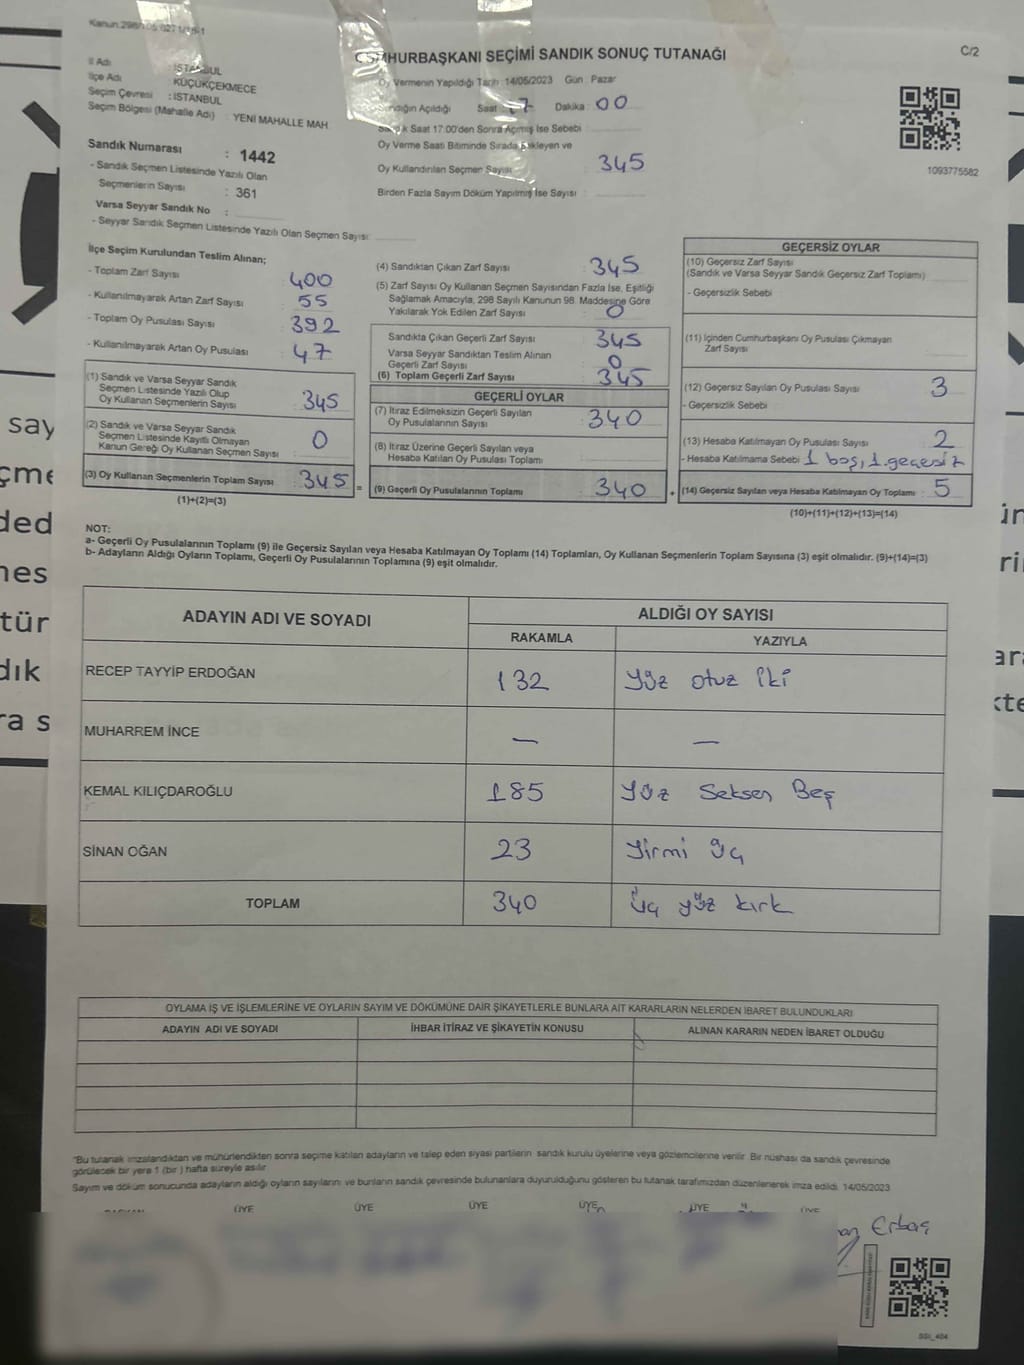 CUMHURBAŞKANI SEÇİMİ SANDIK SONUÇ TUTANAĞI
C/2
İl Adı : İSTANBUL
İlçe Adı KÜÇÜKÇEKMECE
Seçim Çevresi : İSTANBUL
Seçim Bölgesi (Mahalle Adı) : YENİ MAHALLE MAH
Oy Vermenin Yapıldığı Tarih : 14/05/2023 Gün : Pazar
Sandığın Açıldığı Saat 17 Dakika : 00
Sandık Saat 17:00'den Sonra Açılmış İse Sebebi :
Oy Verme Saati Bitiminde Sırada Bekleyen ve
Oy Kullandırılan Seçmen Sayısı : 345
Birden Fazla Sayım Döküm Yapılmış İse Sayısı :
1093775582
Sandık Numarası : 1442
- Sandık Seçmen Listesinde Yazılı Olan
Seçmenlerin Sayısı : 361
Varsa Seyyar Sandık No :
- Seyyar Sandık Seçmen Listesinde Yazılı Olan Seçmen Sayısı:
İlçe Seçim Kurulundan Teslim Alınan;
- Toplam Zarf Sayısı : 400
- Kullanılmayarak Artan Zarf Sayısı : 55
- Toplam Oy Pusulası Sayısı : 392
- Kullanılmayarak Artan Oy Pusulası : 47
(1) Sandık ve Varsa Seyyar Sandık
Seçmen Listesinde Yazılı Olup
Oy Kullanan Seçmenlerin Sayısı : 345
(2) Sandık ve Varsa Seyyar Sandık
Seçmen Listesinde Kayıtlı Olmayan
Kanun Gereği Oy Kullanan Seçmen Sayısı : 0
(3) Oy Kullanan Seçmenlerin Toplam Sayısı : 345 =
(1)+(2)=(3)
(4) Sandıktan Çıkan Zarf Sayısı : 345
(5) Zarf Sayısı Oy Kullanan Seçmen Sayısından Fazla İse, Eşitliği
Sağlamak Amacıyla, 298 Sayılı Kanunun 98. Maddesine Göre
Yakılarak Yok Edilen Zarf Sayısı : 0
Sandıkta Çıkan Geçerli Zarf Sayısı : 345
Varsa Seyyar Sandıktan Teslim Alınan
Geçerli Zarf Sayısı : 0
(6) Toplam Geçerli Zarf Sayısı : 345
GEÇERLİ OYLAR
(7) İtiraz Edilmeksizin Geçerli Sayılan
Oy Pusulalarının Sayısı : 340
(8) İtiraz Üzerine Geçerli Sayılan veya
Hesaba Katılan Oy Pusulası Toplamı :
(9) Geçerli Oy Pusulalarının Toplamı : 340 +
GEÇERSİZ OYLAR
(10) Geçersiz Zarf Sayısı
(Sandık ve Varsa Seyyar Sandık Geçersiz Zarf Toplamı) :
- Geçersizlik Sebebi :
(11) İçinden Cumhurbaşkanı Oy Pusulası Çıkmayan
Zarf Sayısı :
(12) Geçersiz Sayılan Oy Pusulası Sayısı : 3
- Geçersizlik Sebebi :
(13) Hesaba Katılmayan Oy Pusulası Sayısı : 2
- Hesaba Katılmama Sebebi : 1 boş, 1 geçesiz
(14) Geçersiz Sayılan veya Hesaba Katılmayan Oy Toplamı : 5
(10)+(11)+(12)+(13)=(14)
NOT:
a- Geçerli Oy Pusulalarının Toplamı (9) ile Geçersiz Sayılan veya Hesaba Katılmayan Oy Toplamı (14) Toplamları, Oy Kullanan Seçmenlerin Toplam Sayısına (3) eşit olmalıdır. (9)+(14)=(3)
b- Adayların Aldığı Oyların Toplamı, Geçerli Oy Pusulalarının Toplamına (9) eşit olmalıdır.
ADAYIN ADI VE SOYADI ALDIĞI OY SAYISI
RAKAMLA YAZIYLA
RECEP TAYYİP ERDOĞAN 132 Yüz otuz iki
MUHARREM İNCE — —
KEMAL KILIÇDAROĞLU 185 Yüz Seksen Beş
SİNAN OĞAN 23 Yirmi üç
TOPLAM 340 Üç yüz kırk
OYLAMA İŞ VE İŞLEMLERİNE VE OYLARIN SAYIM VE DÖKÜMÜNE DAİR ŞİKAYETLERLE BUNLARA AİT KARARLARIN NELERDEN İBARET BULUNDUKLARI
ADAYIN ADI VE SOYADI İHBAR İTİRAZ VE ŞİKAYETİN KONUSU ALINAN KARARIN NEDEN İBARET OLDUĞU
*Bu tutanak imzalandıktan ve mühürlendikten sonra seçime katılan adayların ve talep eden siyasi partilerin sandık kurulu üyelerine veya gözlemcilerine verilir. Bir nüshası da sandık çevresinde
görülecek bir yere 1 (bir) hafta süreyle asılır.
Sayım ve döküm sonucunda adayların aldığı oyların sayılarını ve bunların sandık çevresinde bulunanlara duyurulduğunu gösteren bu tutanak tarafımızdan düzenlenerek imza edildi. 14/05/2023
BAŞKAN ÜYE ÜYE ÜYE ÜYE ÜYE ÜYE
Erbaş
SSI_404